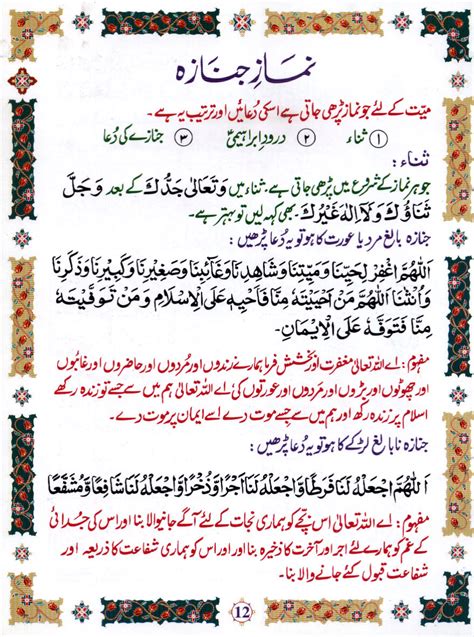 نمازِ جنازہ
میّت کے لئے جو نماز پڑھی جاتی ہے اسکی دُعائیں اور ترتیب یہ ہے۔
① ثناء ② درودِ ابراہیمیؑ ③ جنازے کی دُعا
ثناء:
جو ہر نماز کے شروع میں پڑھی جاتی ہے۔ ثناء میں وَتَعَالٰی جَدُّكَ کے بعد وَجَلَّ
ثَنَاؤُكَ وَلَآ اِلٰهَ غَیْرُكَ۔ بھی کہہ لیں تو بہتر ہے۔
جنازہ بالغ مرد یا عورت کا ہو تو یہ دُعا پڑھیں:
اَللّٰهُمَّ اغْفِرْ لِحَیِّنَا وَمَیِّتِنَا وَشَاهِدِنَا وَغَآئِبِنَا وَصَغِیْرِنَا وَكَبِیْرِنَا وَذَكَرِنَا
وَاُنْثَانَا اَللّٰهُمَّ مَنْ اَحْیَیْتَهٗ مِنَّا فَاَحْیِهٖ عَلَی الْاِسْلَامِ وَمَنْ تَوَفَّیْتَهٗ
مِنَّا فَتَوَفَّهٗ عَلَی الْاِیْمَانِ۔
مفہوم: اے اللہ تعالیٰ مغفرت اور بخشش فرما ہمارے زندوں اور مُردوں اور حاضروں اور غائبوں
اور چھوٹوں اور بڑوں اور مَردوں اور عورتوں کی اے اللہ تعالیٰ ہم میں سے جسے تو زندہ رکھے
اسلام پر زندہ رکھ اور ہم میں سے جسے موت دے اسے ایمان پر موت دے۔
جنازہ نابالغ لڑکے کا ہو تو یہ دُعا پڑھیں:
اَللّٰهُمَّ اجْعَلْهُ لَنَا فَرَطًا وَّاجْعَلْهُ لَنَا اَجْرًا وَّذُخْرًا وَّاجْعَلْهُ لَنَا شَافِعًا وَّمُشَفَّعًا
مفہوم: اے اللہ تعالیٰ اس بچّے کو ہماری نجات کے لئے آگے جانیوالا بنا اور اس کی جُدائی
کے غم کو ہمارے لئے اجر اور آخرت کا ذخیرہ بنا اور اس کو ہماری شفاعت کا ذریعہ اور
شفاعت قبول کئے جانے والا بنا۔
12